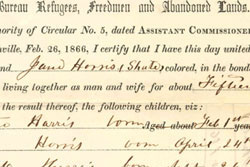 Bureau Refugees, Freedmen and Abandoned Lands.
ority of Circular No. 5, dated ASSISTANT COMMISSIONE
ville, Feb. 26, 1866, I certify that I have this day united
and Jane Horris (Shute), colored, in the bonds
living together as man and wife for about Fiftee
the result thereof, the following children, viz:
Harris born Aged about Feb 1st
Horris born April 14